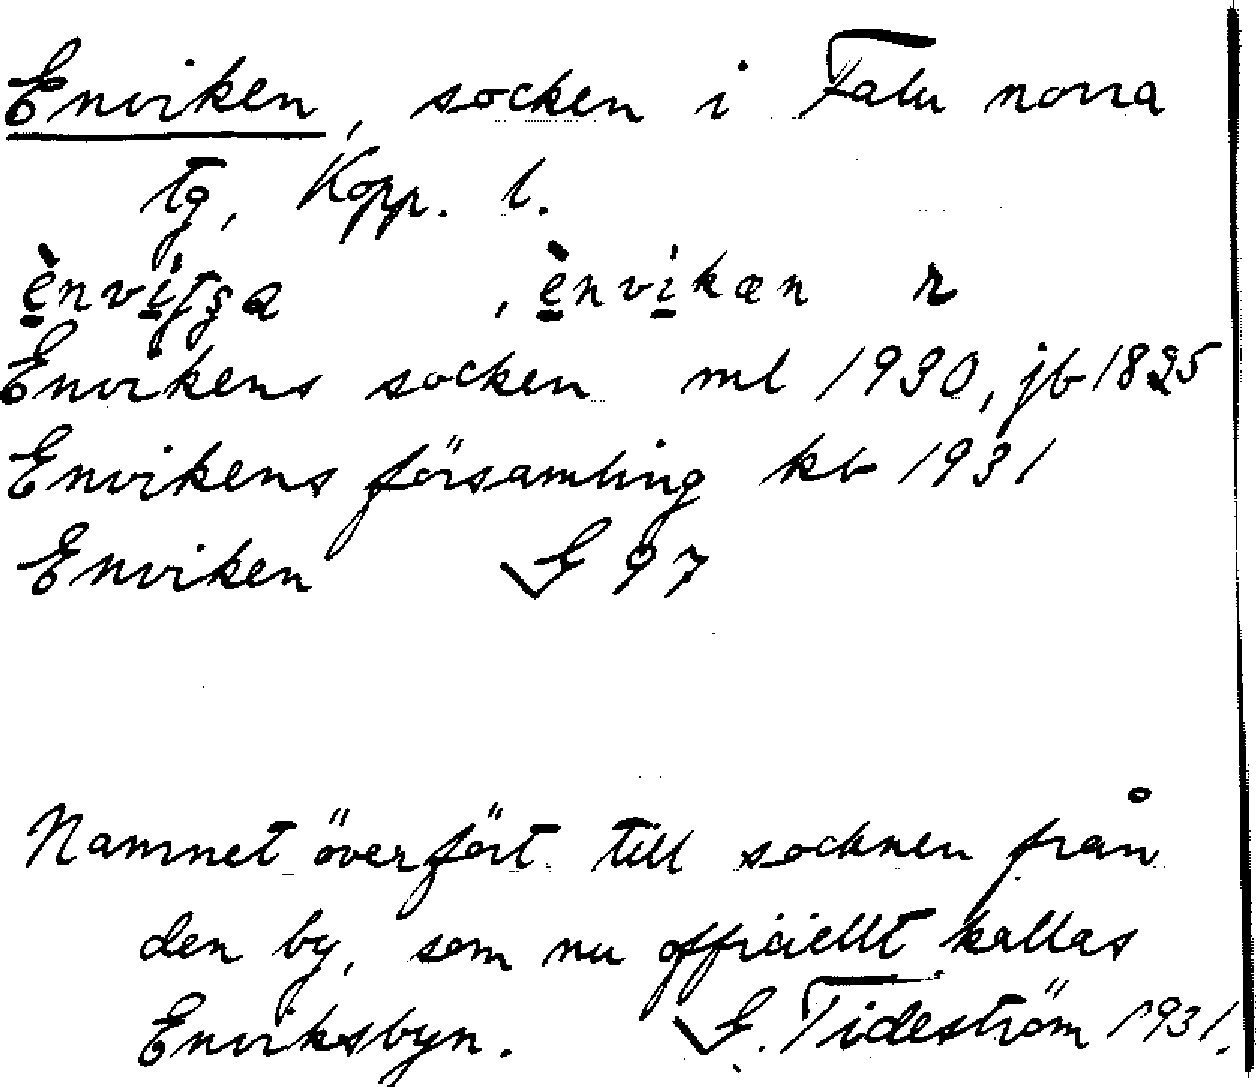 Enviken, socken i Falu norra
tg, Kopp. l.
, ènvikæn r
Envikens socken ml 1930, jb 1825
Envikens församling kb 1931
Enviken G 97
Namnet överfört till socknen från
den by, som nu officiellt kallas
Enviksbyn. G. Tideström 1931.